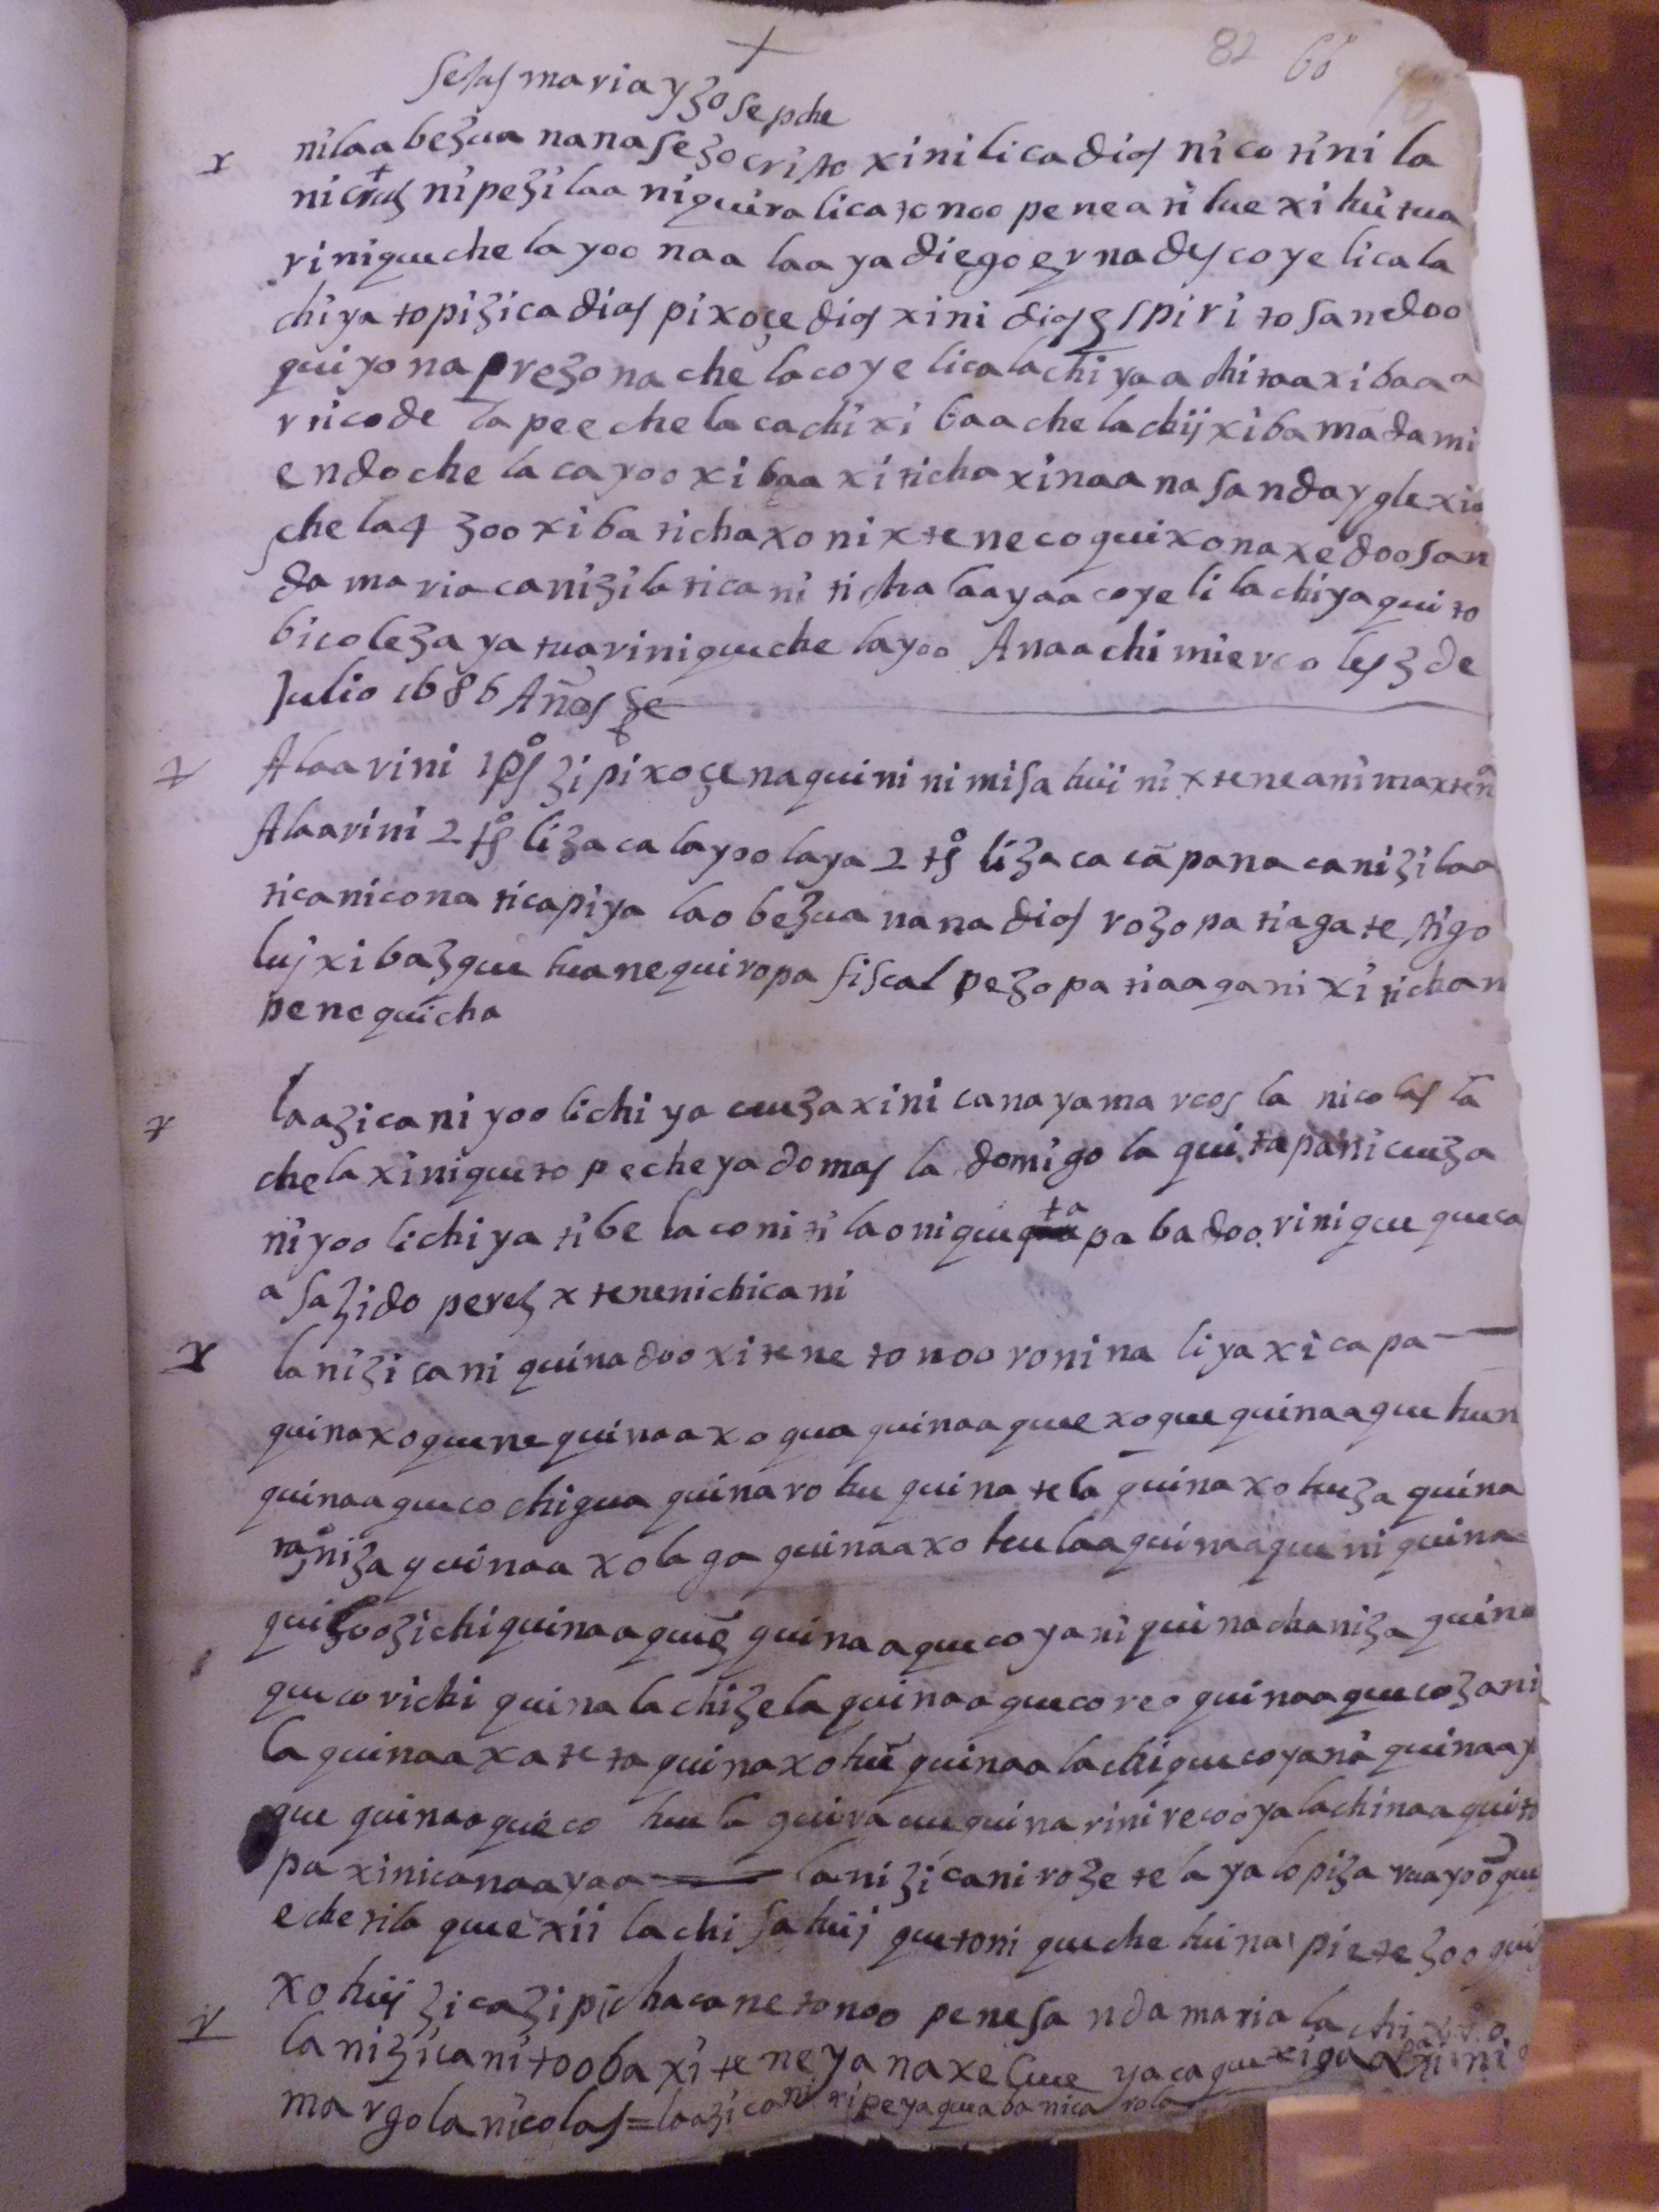 +
82 66
Sesus maria y zosephe
nilaa bezuanana sezocristo xini lica dios nicotini la
nicrus nipezilaa niquiralicatonoo peneati lue xi huitua
riniqueche layoo naa laaya diego ernades coyelicala
chiya topizica dios pixoçe dios xini dios espirito sanedoo
quiyona prezona chela coyelicalachiyaa chitaa xibaaa
rricode la pee chela cachi xibaa chela chij xiba madami
endo chela cayoo xibaa xiticha xinaana sanda yglexia
chela 4 zoo xiba tichaxoni xteneco quixonaxedoo san
da maria canizila ticani ticha laayaa coyelilachiya quito
bicoleza ya tuariniqueche layoo Anaa chi miercoles 3 de
Julio 1686 Años
Alaarini 1 ps zi pixoçena quinini misa huii ni xtene anima xten
Alaarini 2 ts lizaca layoo laya 2 ts lizaca capana canizilaa
ticanicona ticapiya lao bezuanana dios rozopatiaga testigo
luj xibazque huanequiropa fiscal pezopatiaagani xitichan
penequicha
laazicani yoo lichiya cuuza xinicanaya marcos la nicolas la
chela xiniqueto pecheya domas la domigo la quitapani cuuza
niyoo lichiya tibe laconiti laonique ta pa badoo rinique queca
a sazido perez xtenenichicani
lanizicani quinadoo xitene tonoo ronina liya xicapa
quinaxoquene quinaaxoqua quinaaqueexoque quinaaquehun
quinaaquecochigua quinarohu quinatela quinaxohuza quina
taniza quinaaxolaga quinaaxohulaa quinaaqueni quina
quizoozichi quinaaquez quinaaquecoyani quinachaniza quina
quecorichi quinalachizela quinaaquecoreo quinaaquecozani
la quinaaxateta quinaxohui quinaalachiquecoyana quinaay
que quinaaqueco huula quiracuuquina rinirecooya lachinaa quito
pa xinicanaayaa lanizicani rozetela yalopiza ruayoo que
echetila queexii lachi sahuij quetoni queche huina pietezoo qui
xohuij zicazi pichacane tonoo pene sanda maria lachi
lanizicani tooba xiteneya naxelue yacaquexigaa xini
margo la nicolas = laazicani tipeyaquabanicarola